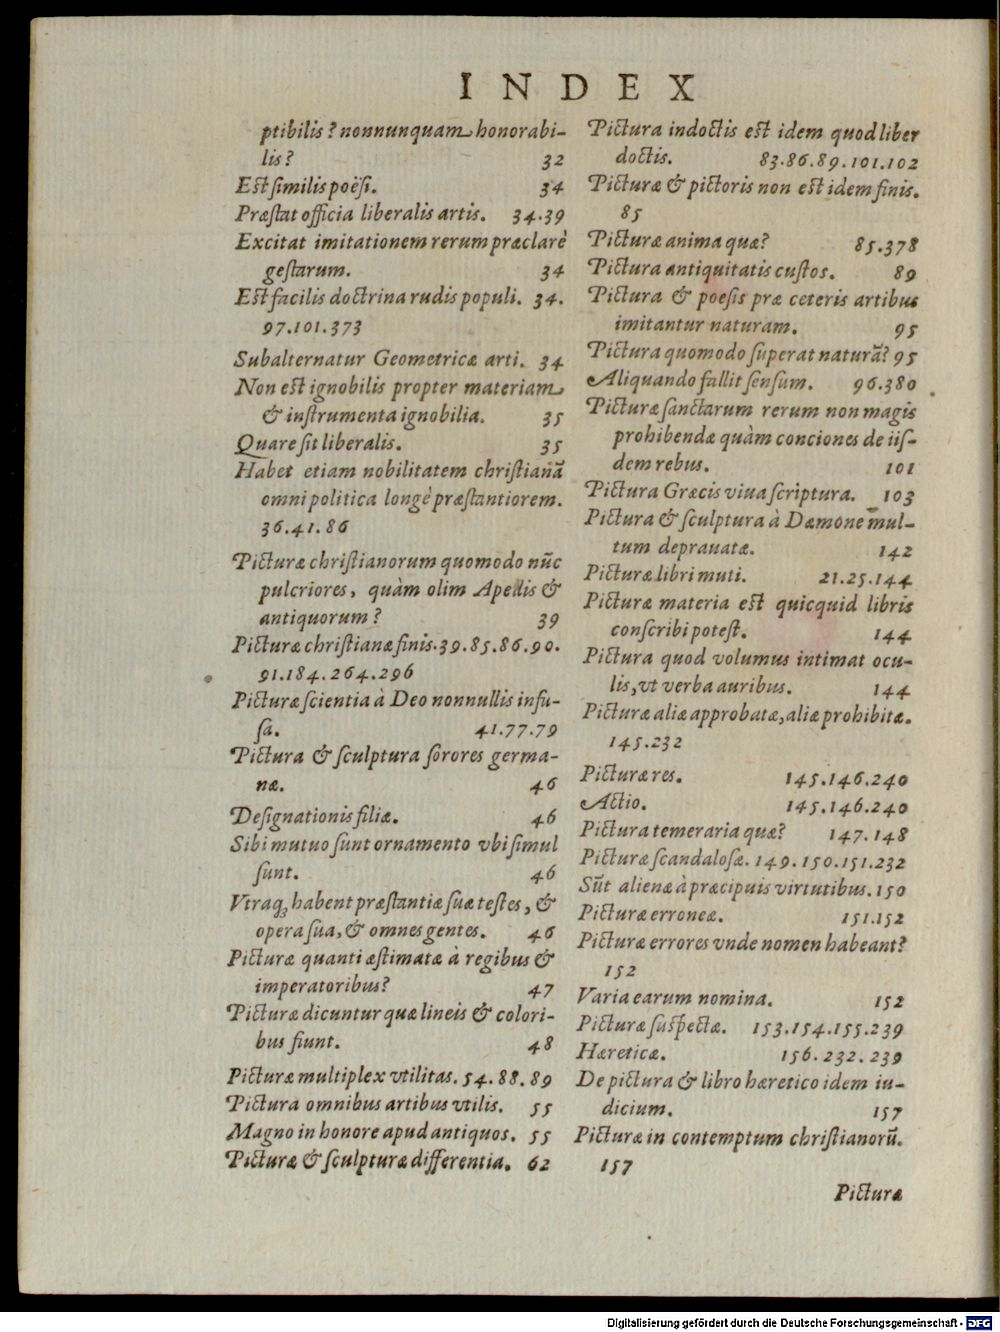 INDEX
ptibilis? nonnunquam honorabi-
lis? 32
Est similis poësi. 34
Præstat officia liberalis artis. 34.39
Excitat imitationem rerum præclarè
gestarum. 34
Est facilis doctrina rudis populi. 34.
97.101.373
Subalternatur Geometricæ arti. 34
Non est ignobilis propter materiam
& instrumenta ignobilia. 35
Quare sit liberalis. 35
Habet etiam nobilitatem christianā
omni politica longè præstantiorem.
36.41.86
Picturæ christianorum quomodo nūc
pulcriores, quàm olim Apellis &
antiquorum? 39
Picturæ christianæ finis. 39.85.86.90.
91.184.264.296
Picturæ scientia à Deo nonnullis infu-
sa. 41.77.79
Pictura & sculptura sorores germa-
næ. 46
Designationis filiæ. 46
Sibi mutuo sunt ornamento vbi simul
sunt. 46
Vtraq; habent præstantiæ suæ testes, &
opera sua, & omnes gentes. 46
Picturæ quanti æstimatæ à regibus &
imperatoribus? 47
Picturæ dicuntur quæ lineis & colori-
bus fiunt. 48
Picturæ multiplex vtilitas. 54.88.89
Pictura omnibus artibus vtilis. 55
Magno in honore apud antiquos. 55
Picturæ & sculpturæ differentia. 62
Pictura indoctis est idem quod liber
doctis. 83.86.89.101.102
Picturæ & pictoris non est idem finis.
85
Picturæ anima quæ? 85.378
Pictura antiquitatis custos. 89
Pictura & poesis præ ceteris artibus
imitantur naturam. 95
Pictura quomodo superat naturā? 95
Aliquando fallit sensum. 96.380
Picturæ sanctarum rerum non magis
prohibendæ quàm conciones de iis-
dem rebus. 101
Pictura Græcis viua scriptura. 103
Pictura & sculptura à Dæmone mul-
tum deprauatæ. 142
Picturæ libri muti. 21.25.144
Picturæ materia est quicquid libris
conscribi potest. 144
Pictura quod volumus intimat ocu-
lis, vt verba auribus. 144
Picturæ aliæ approbatæ, aliæ prohibitæ.
145.232
Picturæ res. 145.146.240
Actio. 145.146.240
Pictura temeraria quæ? 147.148
Picturæ scandalosæ. 149.150.151.232
Sūt alienæ à præcipuis virtutibus. 150
Picturæ erroneæ. 151.152
Picturæ errores vnde nomen habeant?
152
Varia earum nomina. 152
Picturæ suspectæ. 153.154.155.239
Hæreticæ. 156.232.239
De pictura & libro hæretico idem iu-
dicium. 157
Picturæ in contemptum christianorū.
157
Picturæ
Digitalisierung gefördert durch die Deutsche Forschungsgemeinschaft - DFG